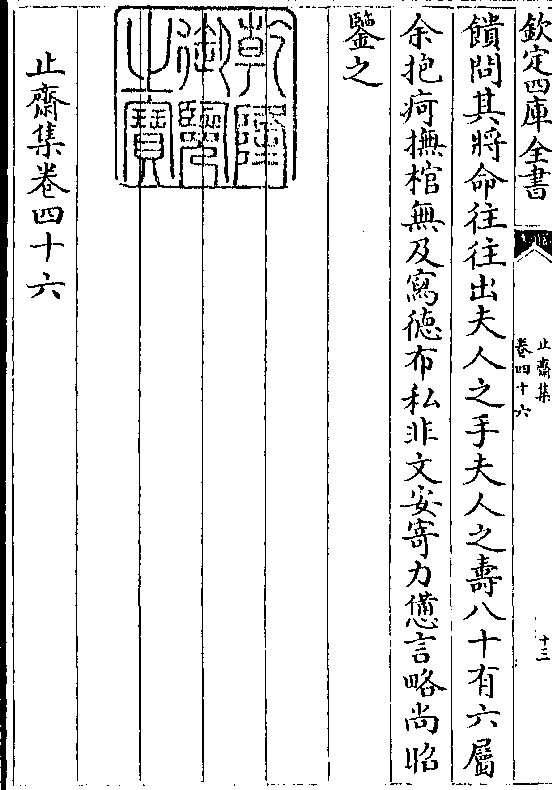 欽定四庫全書
止齋集
卷四十六
十三
饋問其將命往往出夫人之手夫人之壽八十有六屬
余抱疴撫棺無及寫德布私非文安寄力憊言略尚昭
鑒之
乾隆
御覽
之寶
止齋集卷四十六